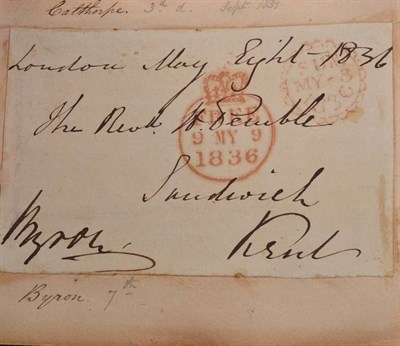 Calthorpe 3rd d. Sept 1831
London May Eight 1836
The Revd. H. Pemble
FREE
9 MY 9
1836
MY
Sandwich
Byron
Kent
Byron 7th